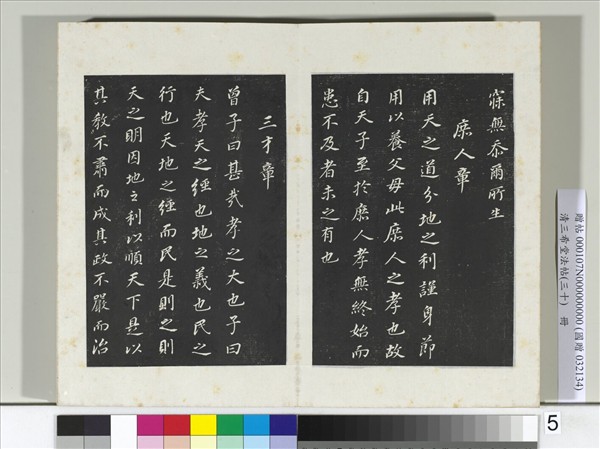 寐無忝爾所生
庶人章
用天之道分地之利謹身節
用以養父母此庶人之孝也故
自天子至於庶人孝無終始而
患不及者未之有也
三才章
曾子曰甚哉孝之大也子曰
夫孝天之經也地之義也民之
行也天地之經而民是則之則
天之明因地之利以順天下是以
其教不肅而成其政不嚴而治
贈帖 000107N000000000 (國贈 032134)
清三希堂法帖(三十) 冊
5